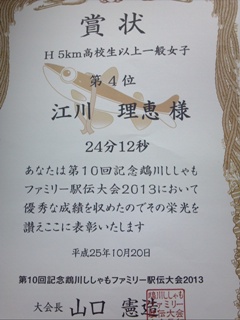 賞状
H 5km高校生以上一般女子
第4位
江川 理恵 様
24分12秒
あなたは第10回記念鵡川ししゃも
ファミリー駅伝大会2013において
優秀な成績を収めたのでその栄光を
讃えここに表彰いたします
平成25年10月20日
第10回記念鵡川ししゃもファミリー駅伝大会2013
大会長 山口 憲造
鵡川ししゃも
ファミリー
駅伝大会